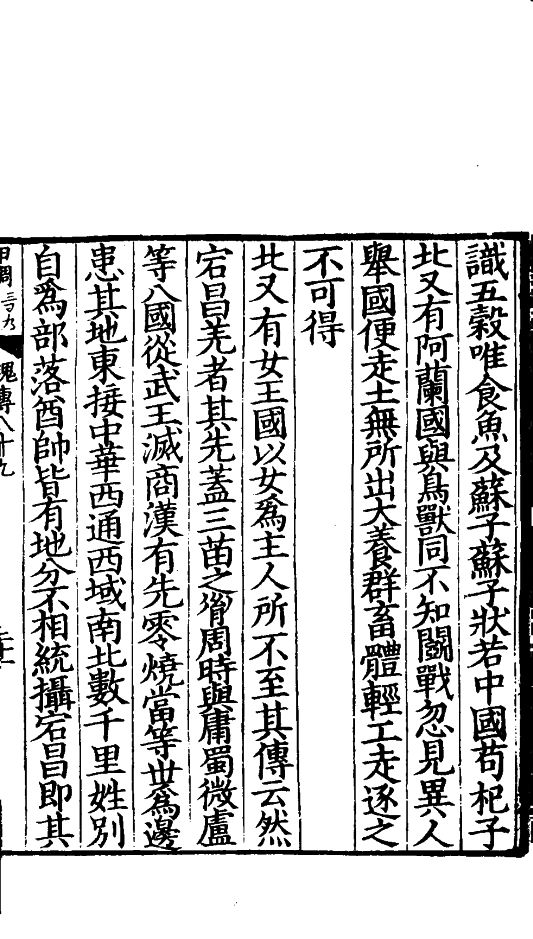 識五穀唯食魚及蘇子蘇子狀若中國苟杞子
北又有阿蘭國與鳥獸同不知鬭戰忽見異人
舉國便走土無所出大養群畜體輕工走逐之
不可得
北又有女王國以女爲主人所不至其傳云然
宕昌羌者其先蓋三苗之胷周時與庸蜀微盧
等八國從武王滅商漢有先零燒當等世爲邊
患其地東接中華西通西域南北數千里姓別
自爲部落酋帥皆有地分不相統攝宕昌即其
傳八十九